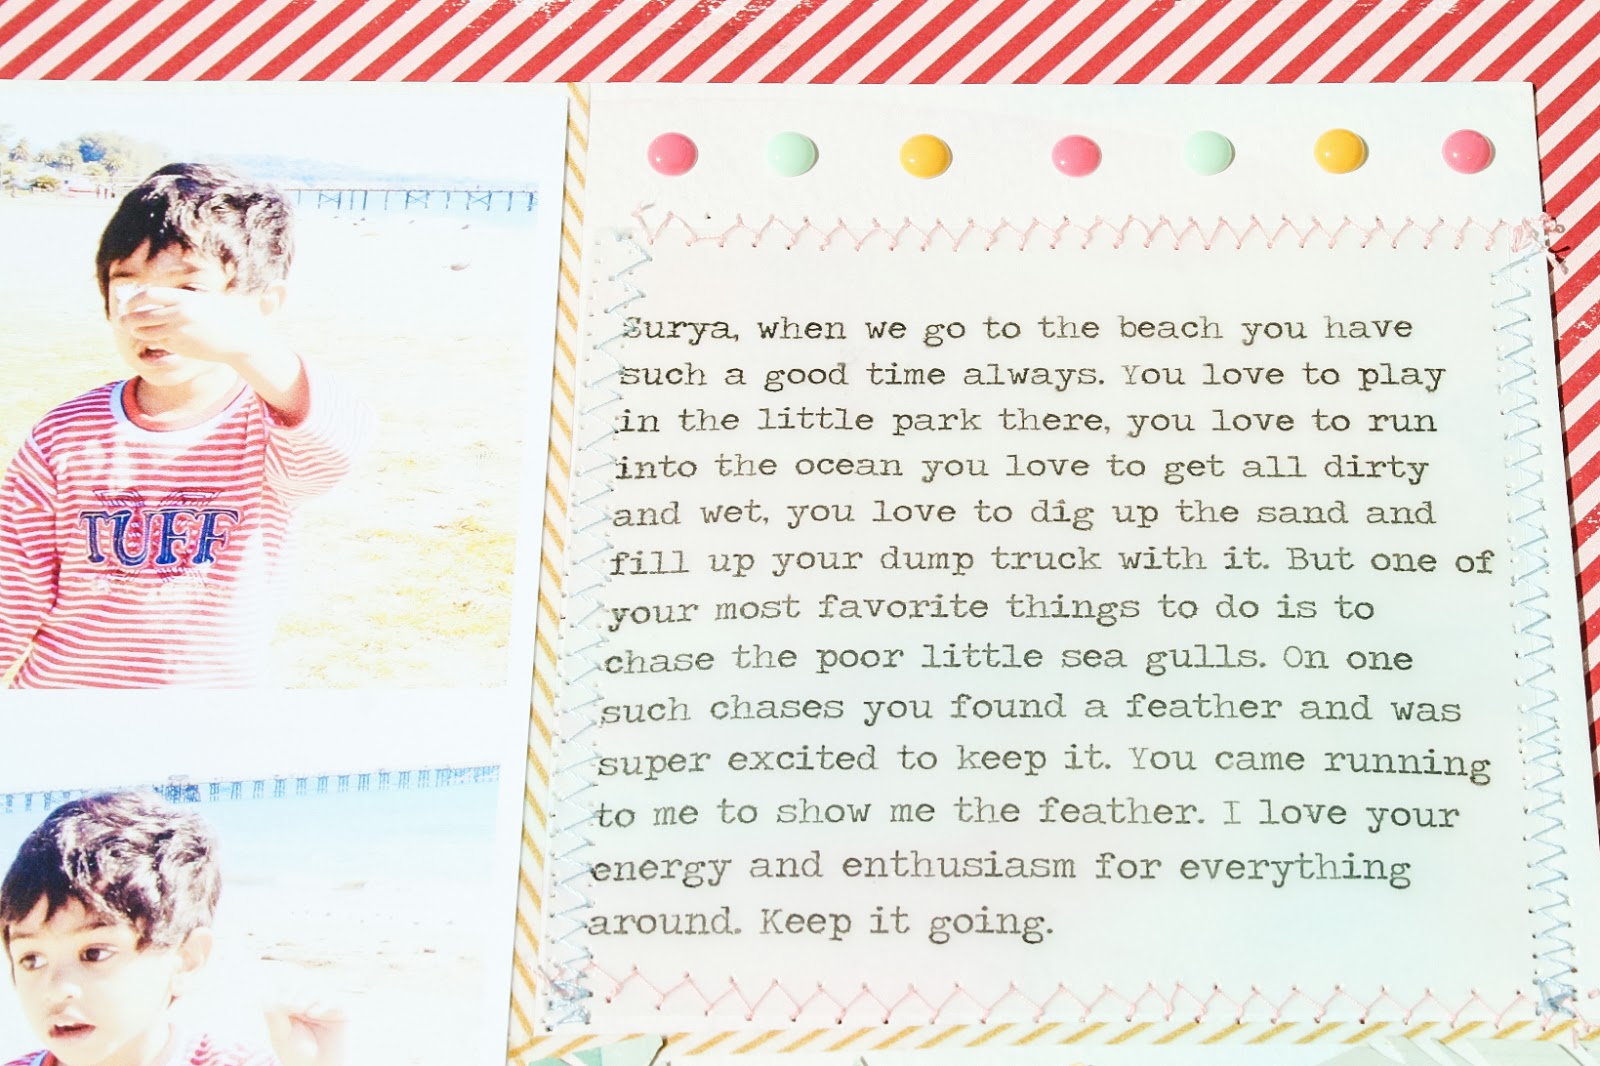 TUFF
Surya, when we go to the beach you have
such a good time always. You love to play
in the little park there, you love to run
into the ocean you love to get all dirty
and wet, you love to dig up the sand and
fill up your dump truck with it. But one of
your most favorite things to do is to
chase the poor little sea gulls. On one
such chases you found a feather and was
super excited to keep it. You came running
to me to show me the feather. I love your
energy and enthusiasm for everything
around. Keep it going.